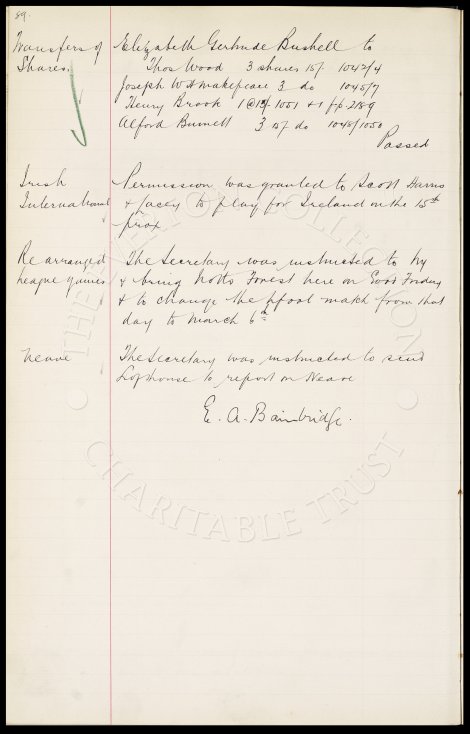 89.
Transfers of Shares.
Elizabeth Gertrude Bushell to
Thos Wood 3 shares 15/- 1042/4
Joseph W Wakefield 3 do 1045/7
Henry Brook 1 @ 15/- 1051 + 1 f.p. 2189
Alford Burnett 3 15/- do 1048/1050
Passed
Irish International
Permission was granted to Scott Harris
& Lacey to play for Ireland on the 15th
prox
Re arranged league games
The Secretary was instructed to try
& bring Notts Forest here on Good Friday
& to change the L'pool match from that
day to March 6th
Neave
The Secretary was instructed to send
Lofthouse to report on Neave
E. A. Bainbridge.
THE EVERTON COLLECTION
CHARITABLE TRUST